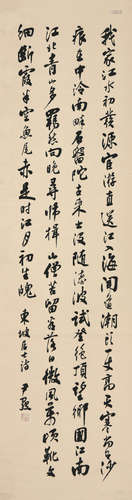 我家江水初發源宦游直送江入海聞道潮頭一丈高天寒尚有沙
痕在中泠南畔石盤陀古來出沒隨濤波試登絕頂望鄉國江南
江北青山多羈愁畏晚尋歸楫山僧苦留看落日微風萬頃靴文
細斷霞半空魚尾赤是時江月初生魄 東坡居士詩 尹默